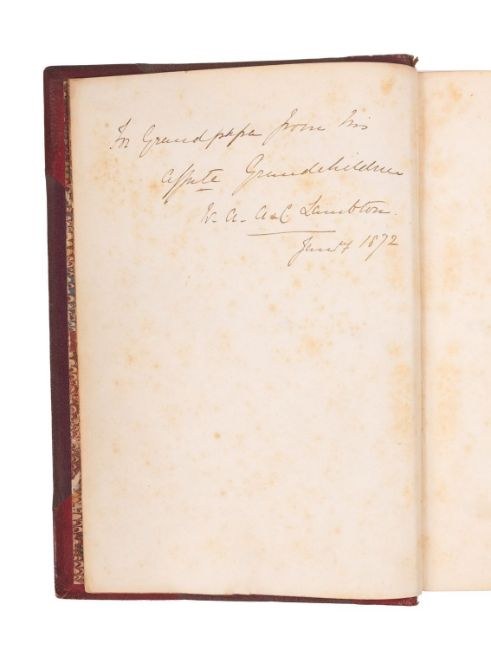 For Grandpapa from his
affcte Grandchildren
V. A. A & C Lambton.
1872